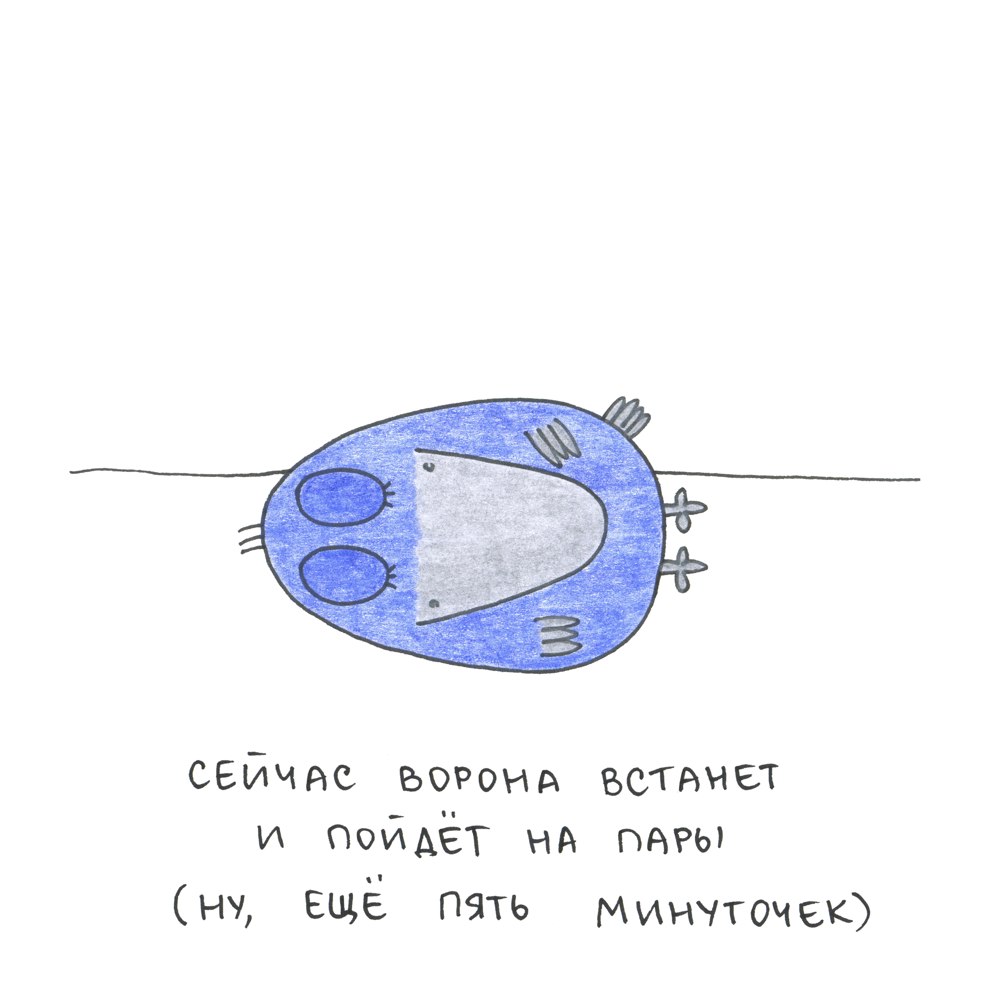 СЕЙЧАС ВОРОНА ВСТАНЕТ
И ПОЙДЁТ НА ПАРЫ
(НУ, ЕЩЁ ПЯТЬ МИНУТОЧЕК)